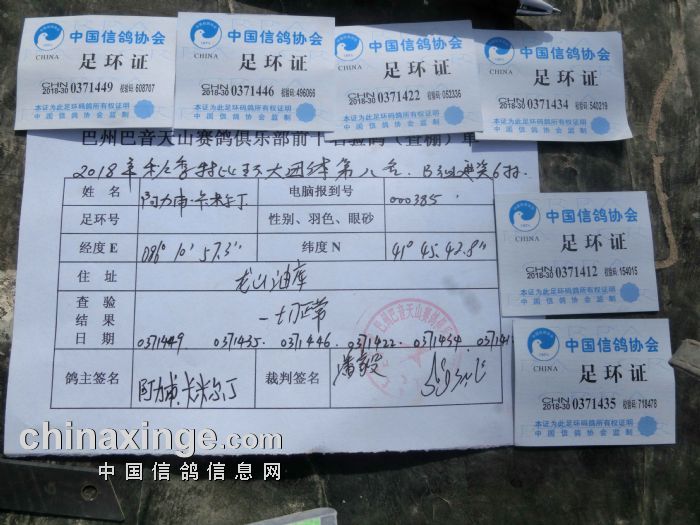 中国信鸽协会
CHINA
足环证
CHN
2018-30 0371449 校验码 608707
本证为此足环码鸽所有权证明
中国信鸽协会监制
中国信鸽协会
CHINA
足环证
CHN
2018-30 0371446 校验码 496066
本证为此足环码鸽所有权证明
中国信鸽协会监制
中国信鸽协会
CHINA
足环证
CHN
2018-30 0371422 校验码 052336
本证为此足环码鸽所有权证明
中国信鸽协会监制
中国信鸽协会
CHINA
足环证
CHN
2018-30 0371434 校验码 540219
本证为此足环码鸽所有权证明
中国信鸽协会监制
巴州巴音天山赛鸽俱乐部前十名验鸽(查棚)单
2018年秋季特比环大团体第八名
姓名 阿力甫·卡米尔丁 电脑报到号 000385
足环号 性别、羽色、眼砂
经度E 086° 10' 57.3" 纬度N 41° 45. 42.8"
住址 龙山油库
查验
结果 一切正常
日期 0371449 0371435. 0371446. 0371422. 0371434
鸽主签名 阿力甫.卡米尔丁 裁判签名
中国信鸽协会
CHINA
足环证
CHN
2018-30 0371412 校验码 154015
本证为此足环码鸽所有权证明
中国信鸽协会监制
中国信鸽协会
CHINA
足环证
CHN
2018-30 0371435 校验码 718478
本证为此足环码鸽所有权证明
中国信鸽协会监制
chinaxinge.com
中国信鸽信息网